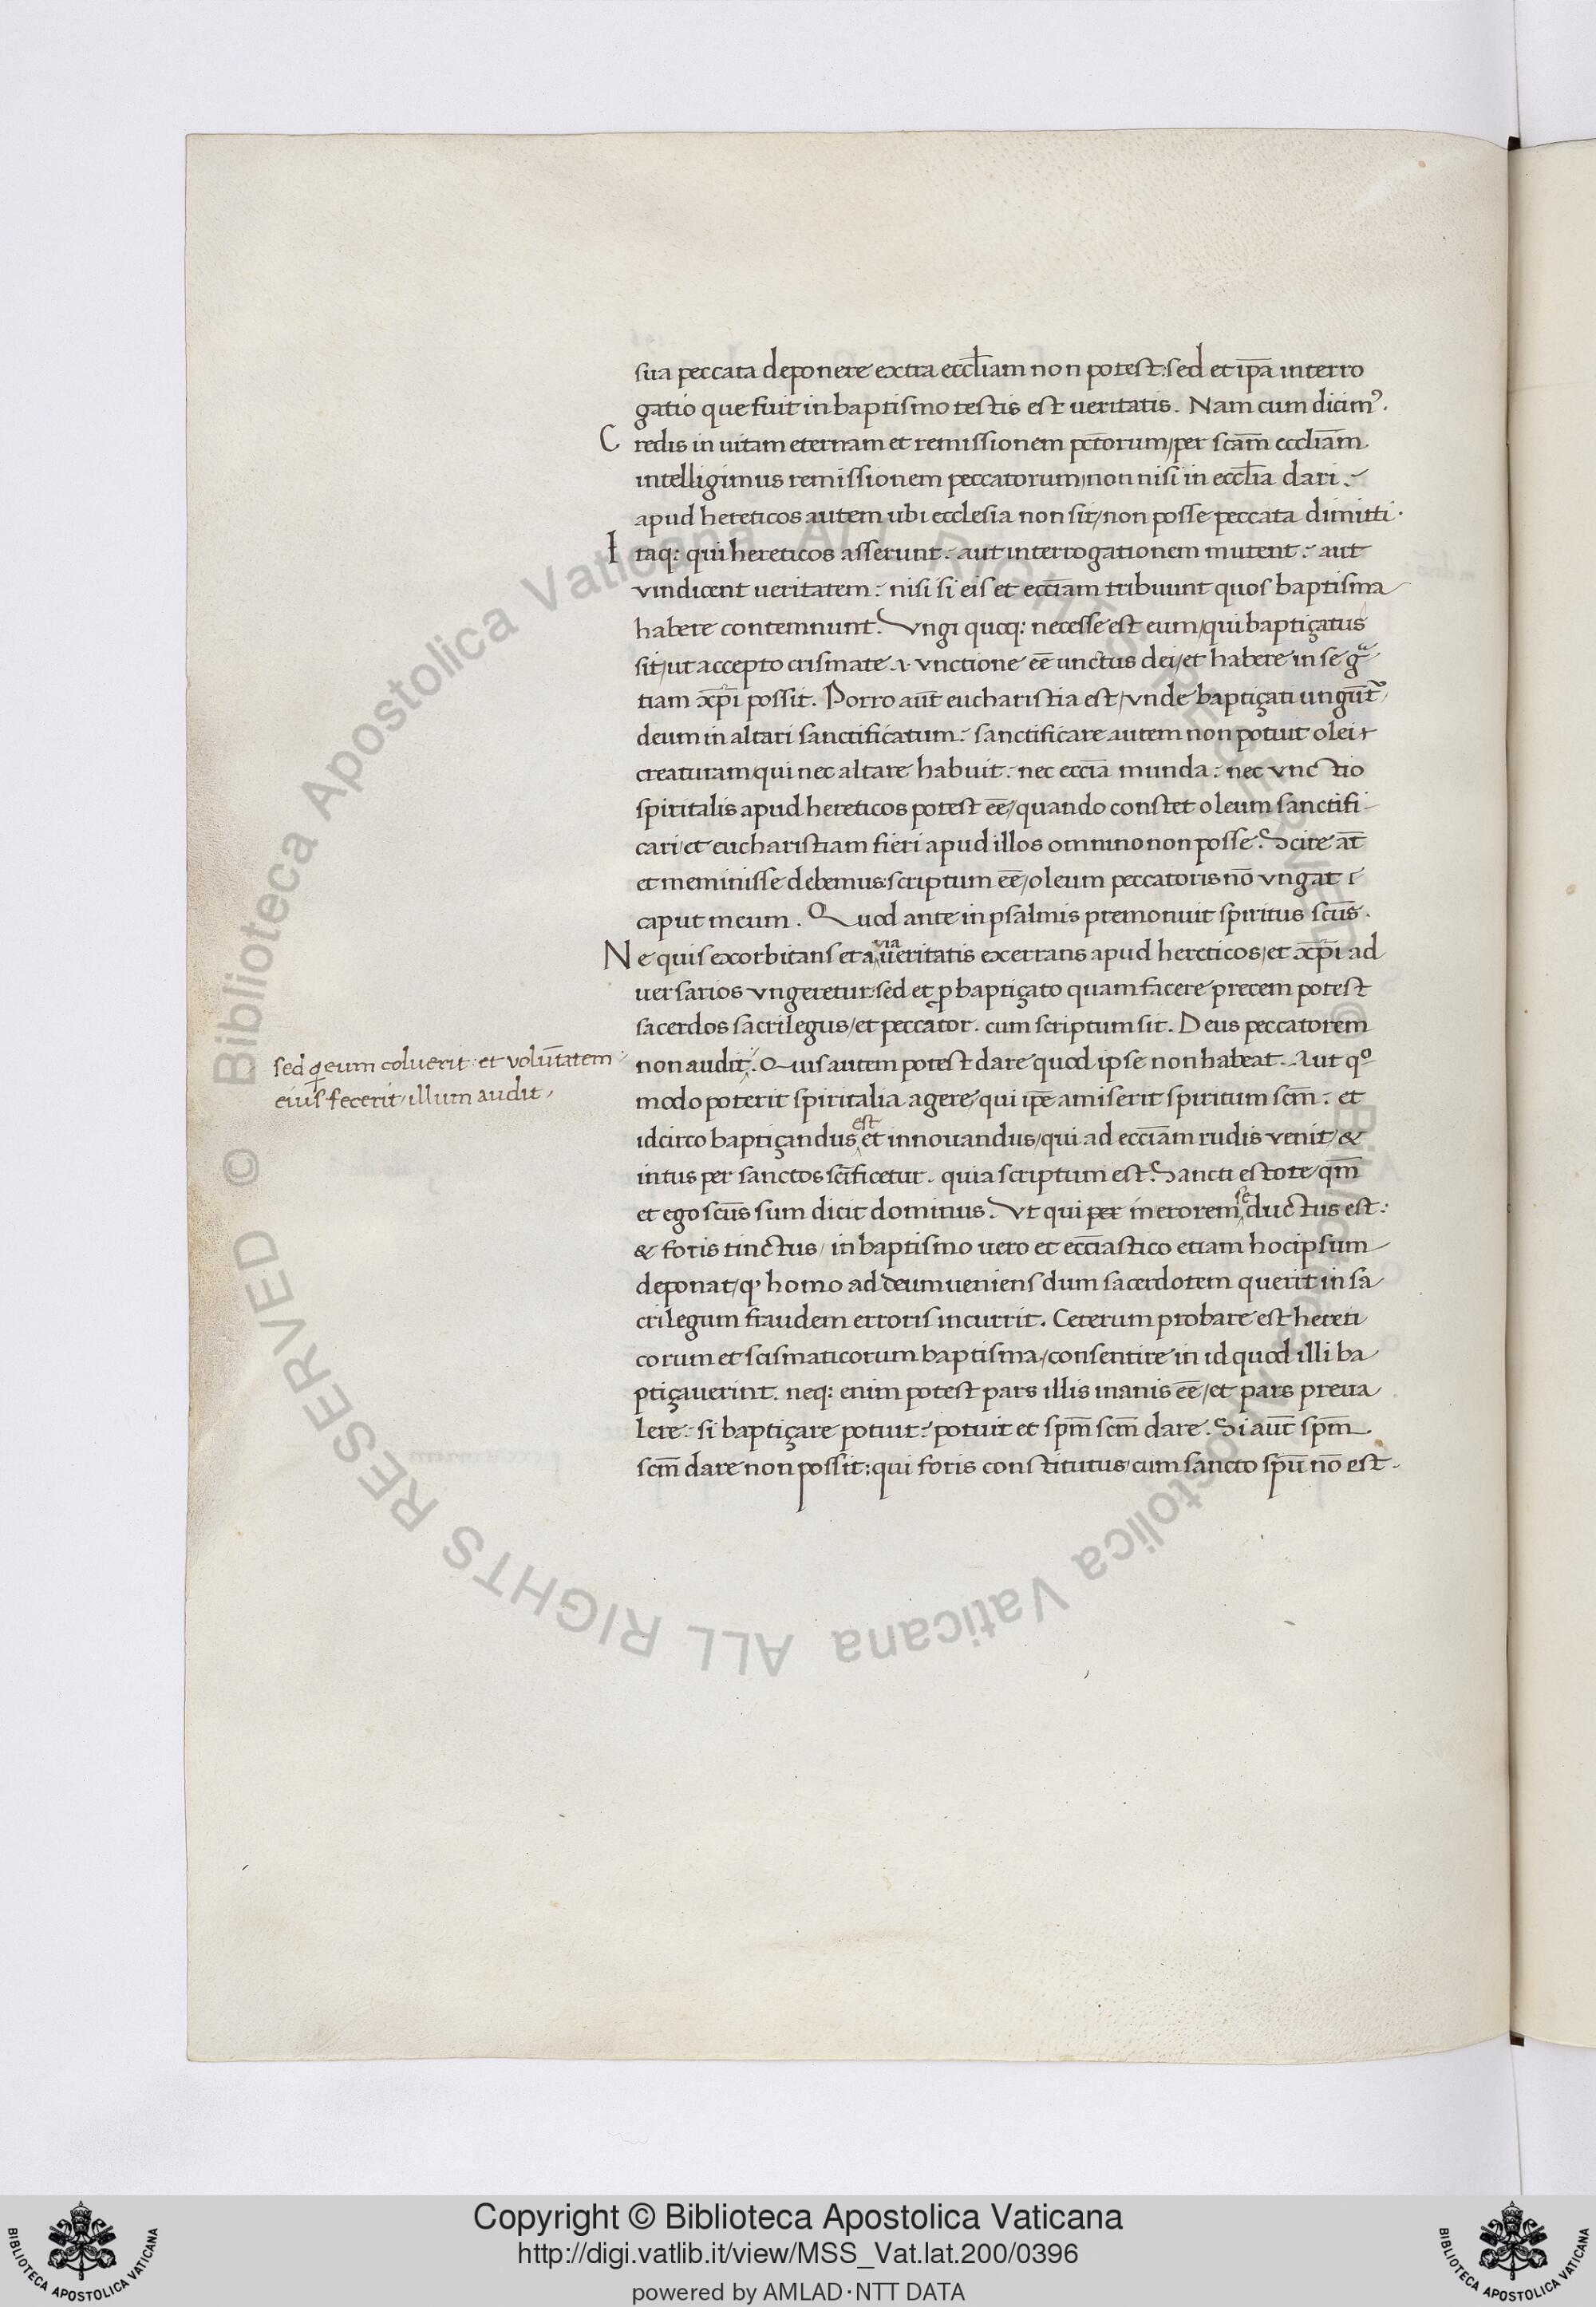 sua peccata deponere extra eccl̄iam non potest: sed et ip̄a interro
gatio que fuit in baptismo testis est ueritatis. Nam cum dicimꝰ.
Credis in uitam eternam et remissionem pctōrum, per scām eccliām
intelligimus remissionem peccatorum, non nisi in eccl̄ia dari.
apud hereticos autem ubi ecclesia non sit, non posse peccata dimitti.
Itaq: qui hereticos asserunt: aut interrogationem mutent: aut
vindicent ueritatem: nisi si eis et ecciām tribuunt quos baptisma
habere contemnunt. Vngi quoq: necesse est eum, qui baptiçatus
sit, ut accepto crismate .i. vnctione eē unctus dei, et habere in se gᵃ
tiam xp̄i possit. Porro aūt eucharistia est, vnde baptiçati ungūtꝰ,
deum in altari sanctificatum: sanctificare autem non potuit olei
creaturam, qui nec altare habuit: nec ecciā munda: nec vnctio
spiritalis apud hereticos potest eē, quando constet oleum sanctifi
cari, et eucharistiam fieri apud illos omnino non posse. Scire aūt
et meminisse debemus: scriptum eē, oleum peccatoris nō vngat
caput meum. Quod ante in psalmis premonuit spiritus scūs.
Ne quis exorbitans et a via ueritatis exerrans apud hereticos, et xp̄i ad
uersarios vngeretur: sed et ꝓ baptiçato quam facere precem potest
sacerdos sacrilegus, et peccator. cum scriptum sit. Deus peccatorem
non audit. Quis autem potest dare quod ipse non habeat. Aut qᵒ
sed q̣ eum coluerit: et volūtatem
eius fecerit, illum audit,
modo poterit spiritalia agere, qui ip̄e amiserit spiritum scm̄: et
idcirco baptiçandus est et innouandus, qui ad ecciām rudis venit, &
intus per sanctos scīficetur. quia scriptum est. Sancti estote, qm̄
et ego scūs sum dicit dominus. Vt qui per in erorem seductus est:
& foris tinctus, in baptismo uero et ecciāstico etiam hoc ipsum
deponat, q' homo ad deum ueniens dum sacerdotem querit in sa
crilegum fraudem erroris incurrit. Ceterum probare est hereti
corum et scismaticorum baptisma, consentire in id quod illi ba
ptiçauerint. neq: enim potest pars illis inanis eē, et pars preua
lere: si baptiçare potuit: potuit et spm̄ scm̄ dare. Si aūt spm̄
scm̄ dare non possit: qui foris constitutus, cum sancto spū nō est.
Copyright © Biblioteca Apostolica Vaticana
http://digi.vatlib.it/view/MSS_Vat.lat.200/0396
powered by AMLAD·NTT DATA
BIBLIOTECA APOSTOLICA VATICANA
BIBLIOTECA APOSTOLICA VATICANA
© Biblioteca Apostolica Vaticana ALL RIGHTS RESERVED © Biblioteca Apostolica Vaticana ALL RIGHTS RESERVED